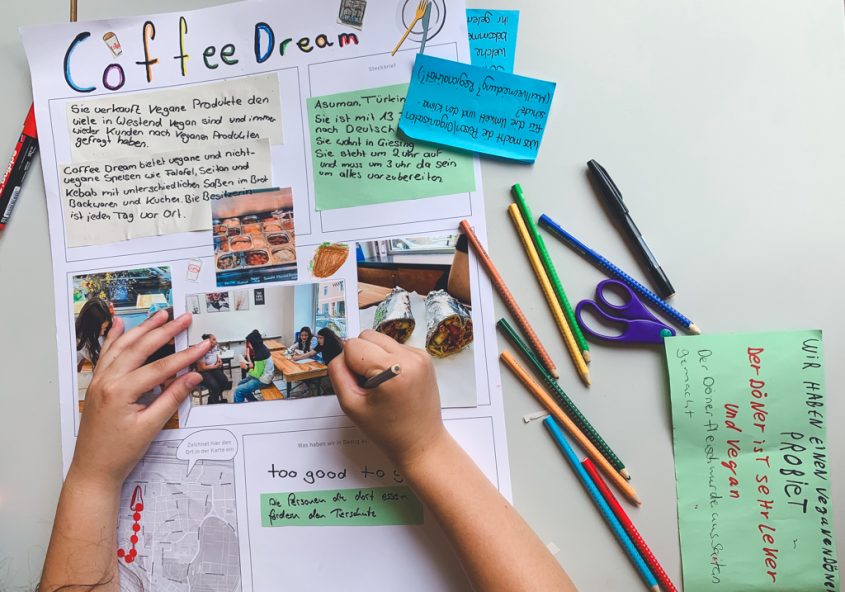 Coffee Dream
Sie verkauft Vegane Produkte den
viele in Westend Vegan sind und imme
wieder Kunden nach Veganen Produkten
gefragt haben.
Coffee Dream bietet vegane und nicht-
vegane Speisen wie Falafel, Seitan und
Kebab mit unterschiedlichen Soßen im Brot
Backwaren und Kuchen. Die Besitzerin
ist jeden Tag vor Ort.
Steckbrief
Asuman, Türkin
Sie ist mit 13
nach Deutsch
Sie wohnt in Giesing
Sie steht um 2 uhr auf
und muss um 3 uhr da sein
um alles vorzubereiten
welche
bekomme
ihr gele
Was macht die Person/Organisation
für die Umwelt und den Klima-
schutz?
(Müllvermeidung? Regionalität?)
Zeichnet hier den
Ort in der Karte ein
Was haben wir in Bezug
too good to g
Die Personen die dort essen
fördern den Tierschutz
WIR HABEN EINEN VEGANEN DÖNER
PROBIET
DER DÖNER IST SEHR LEKER
und vegan
Der Dönerfleisch wurde aus Saiten
gemacht